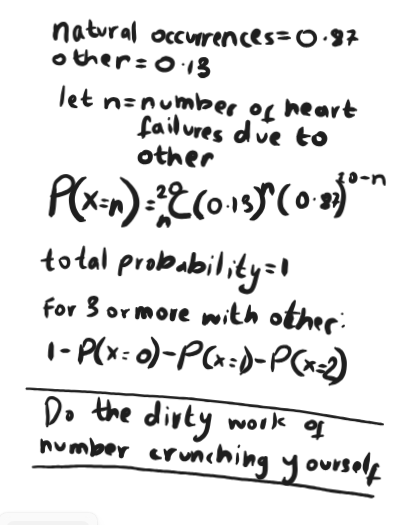 natural occurrences=0.87
other=0.13
let n=number of heart
failures due to
other
P(x=n)=²⁰ₙC(0.13)ⁿ(0.87)²⁰⁻ⁿ
total probability=1
for 3 or more with other:
1-P(x=0)-P(x=1)-P(x=2)
Do the dirty work of
number crunching yourself